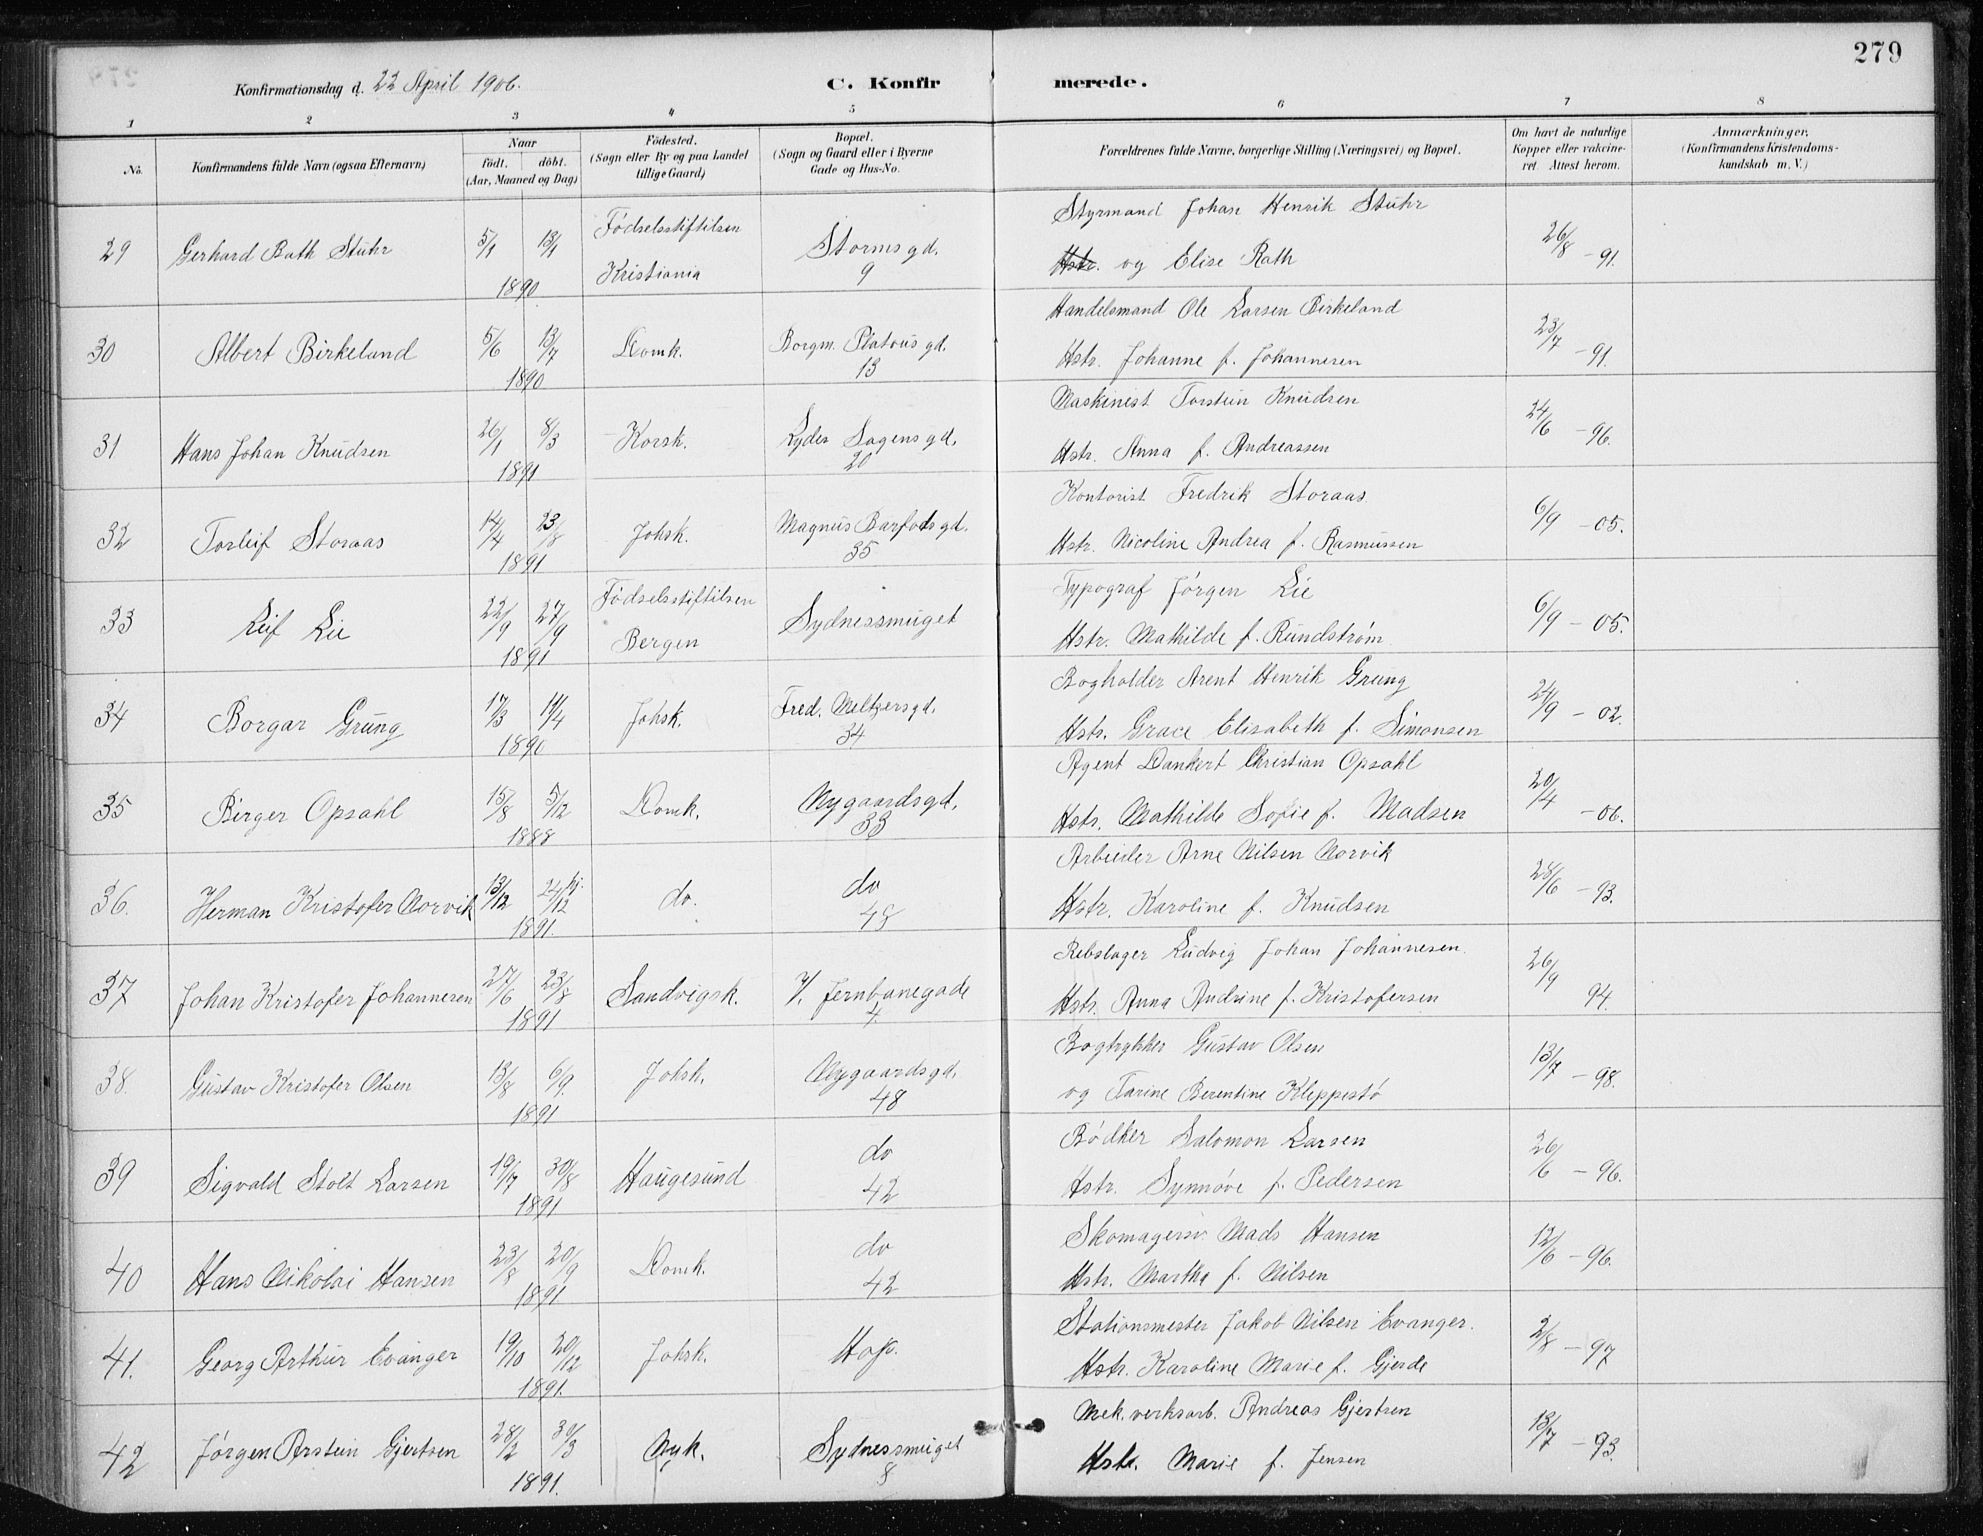 279
Konfirmationsdag d. 22 April 1906.
C. Konfirmerede.
1 2 3 4 5 6 7 8
No. | Konfirmandens fulde Navn (ogsaa Efternavn) | Naar født. døbt. (Aar, Maaned og Dag) | Fødested. (Sogn eller By og paa Landet tillige Gaard) | Bopæl. (Sogn og Gaard eller i Byerne Gade og Hus-No. | Forældrenes fulde Navne, borgerlige Stilling (Næringsvei) og Bopæl. | Om havt de naturlige Kopper eller vaccineret. Attest herom. | Anmærkninger. (Konfirmandens Kristendomskundskab m. V.)
29 Gerhard Rath Stuhr 5/1 13/4 1890 Fødselsstiftilsen Kristiania Storms gd. 9 Styrmand Johan Henrik Stuhr
og Elise Rath 26/8 - 91.
30 Albert Birkeland 5/6 13/7 1890 Domk. Borgm. Platous gd. 13 Handelsmand Ole Larsen Birkeland
Hstr. Johanne f. Johannesen 23/7 - 91.
31 Hans Johan Knudsen 26/1 8/3 1891 Korsk. Lyder Sagens gd. 20 Maskinist Torstein Knudsen
Hstr. Anna f. Andreassen 24/6 - 96.
32 Torleif Storaas 14/4 23/8 1891 Johsk. Magnus Barfods gd. 35 Kontorist Fredrik Storaas
Hstr. Nicoline Andrea f. Rasmussen 6/9 - 05.
33 Leif Lie 22/9 27/9 1891 Fødselsstiftilsen Bergen Sydnessmuget Typograf Jørgen Lie
Hstr. Mathilde f. Rundstrøm 6/9 - 05.
34 Borgar Grung 17/3 14/4 1890 Johsk. Fred. Meltzersgd. 34 Bogholder Arent Henrik Grung
Hstr. Grace Elisabeth f. Simonsen 24/9 - 02.
35 Birger Opsahl 15/8 5/12 1888 Domk. Nygaardsgd. 33 Agent Dankert Christian Opsahl
Hstr. Mathilde Sofie f. Madsen 20/4 - 06.
36. Herman Kristofer Norvik 13/12 24/12 hj. 1891. do. do 48 Arbeider Arne Nilsen Norvik
Hstr. Karoline f. Knudsen 28/6 - 93.
37 Johan Kristofer Johannesen 27/6 23/8 1891 Sandvigsk. V. Jernbanegade 4. Rebslager Ludvig Johan Johannesen.
Hstr. Anna Andrine f. Kristofersen 26/9 94.
38. Gustav Kristofer Olsen 13/8 6/9. 1891 Johsk. Nygaardsgd. 48 Bogtrykker Gustav Olsen
og Tarine Berentine Kleppestø 13/7 - 98.
39 Sigvald Stolt Larsen 19/7 30/8 1891 Haugesund do 42 Bødker Salomon Larsen
Hstr. Synnøve f. Pedersen 26/6 - 96.
40 Hans Nikolai Hansen 23/8 20/9 1891 Domk. do 42 Skomagersv. Mads Hansen
Hstr. Martha f. Nilsen 12/6 - 96.
41. Georg Arthur Evanger 19/10 20/12 1891. Johsk. Hop. Stationsmester Jakob Nilsen Evanger.
Hstr. Karoline Marie f. Gjerde 2/8 - 97
42 Jørgen Arstein Gjertsen 28/2 30/3 1891. Nyk. Sydnessmuget 8 Mek. verksarb. Andreas Gjertsen
Hstr. Marie f. Jensen 13/7 - 93.